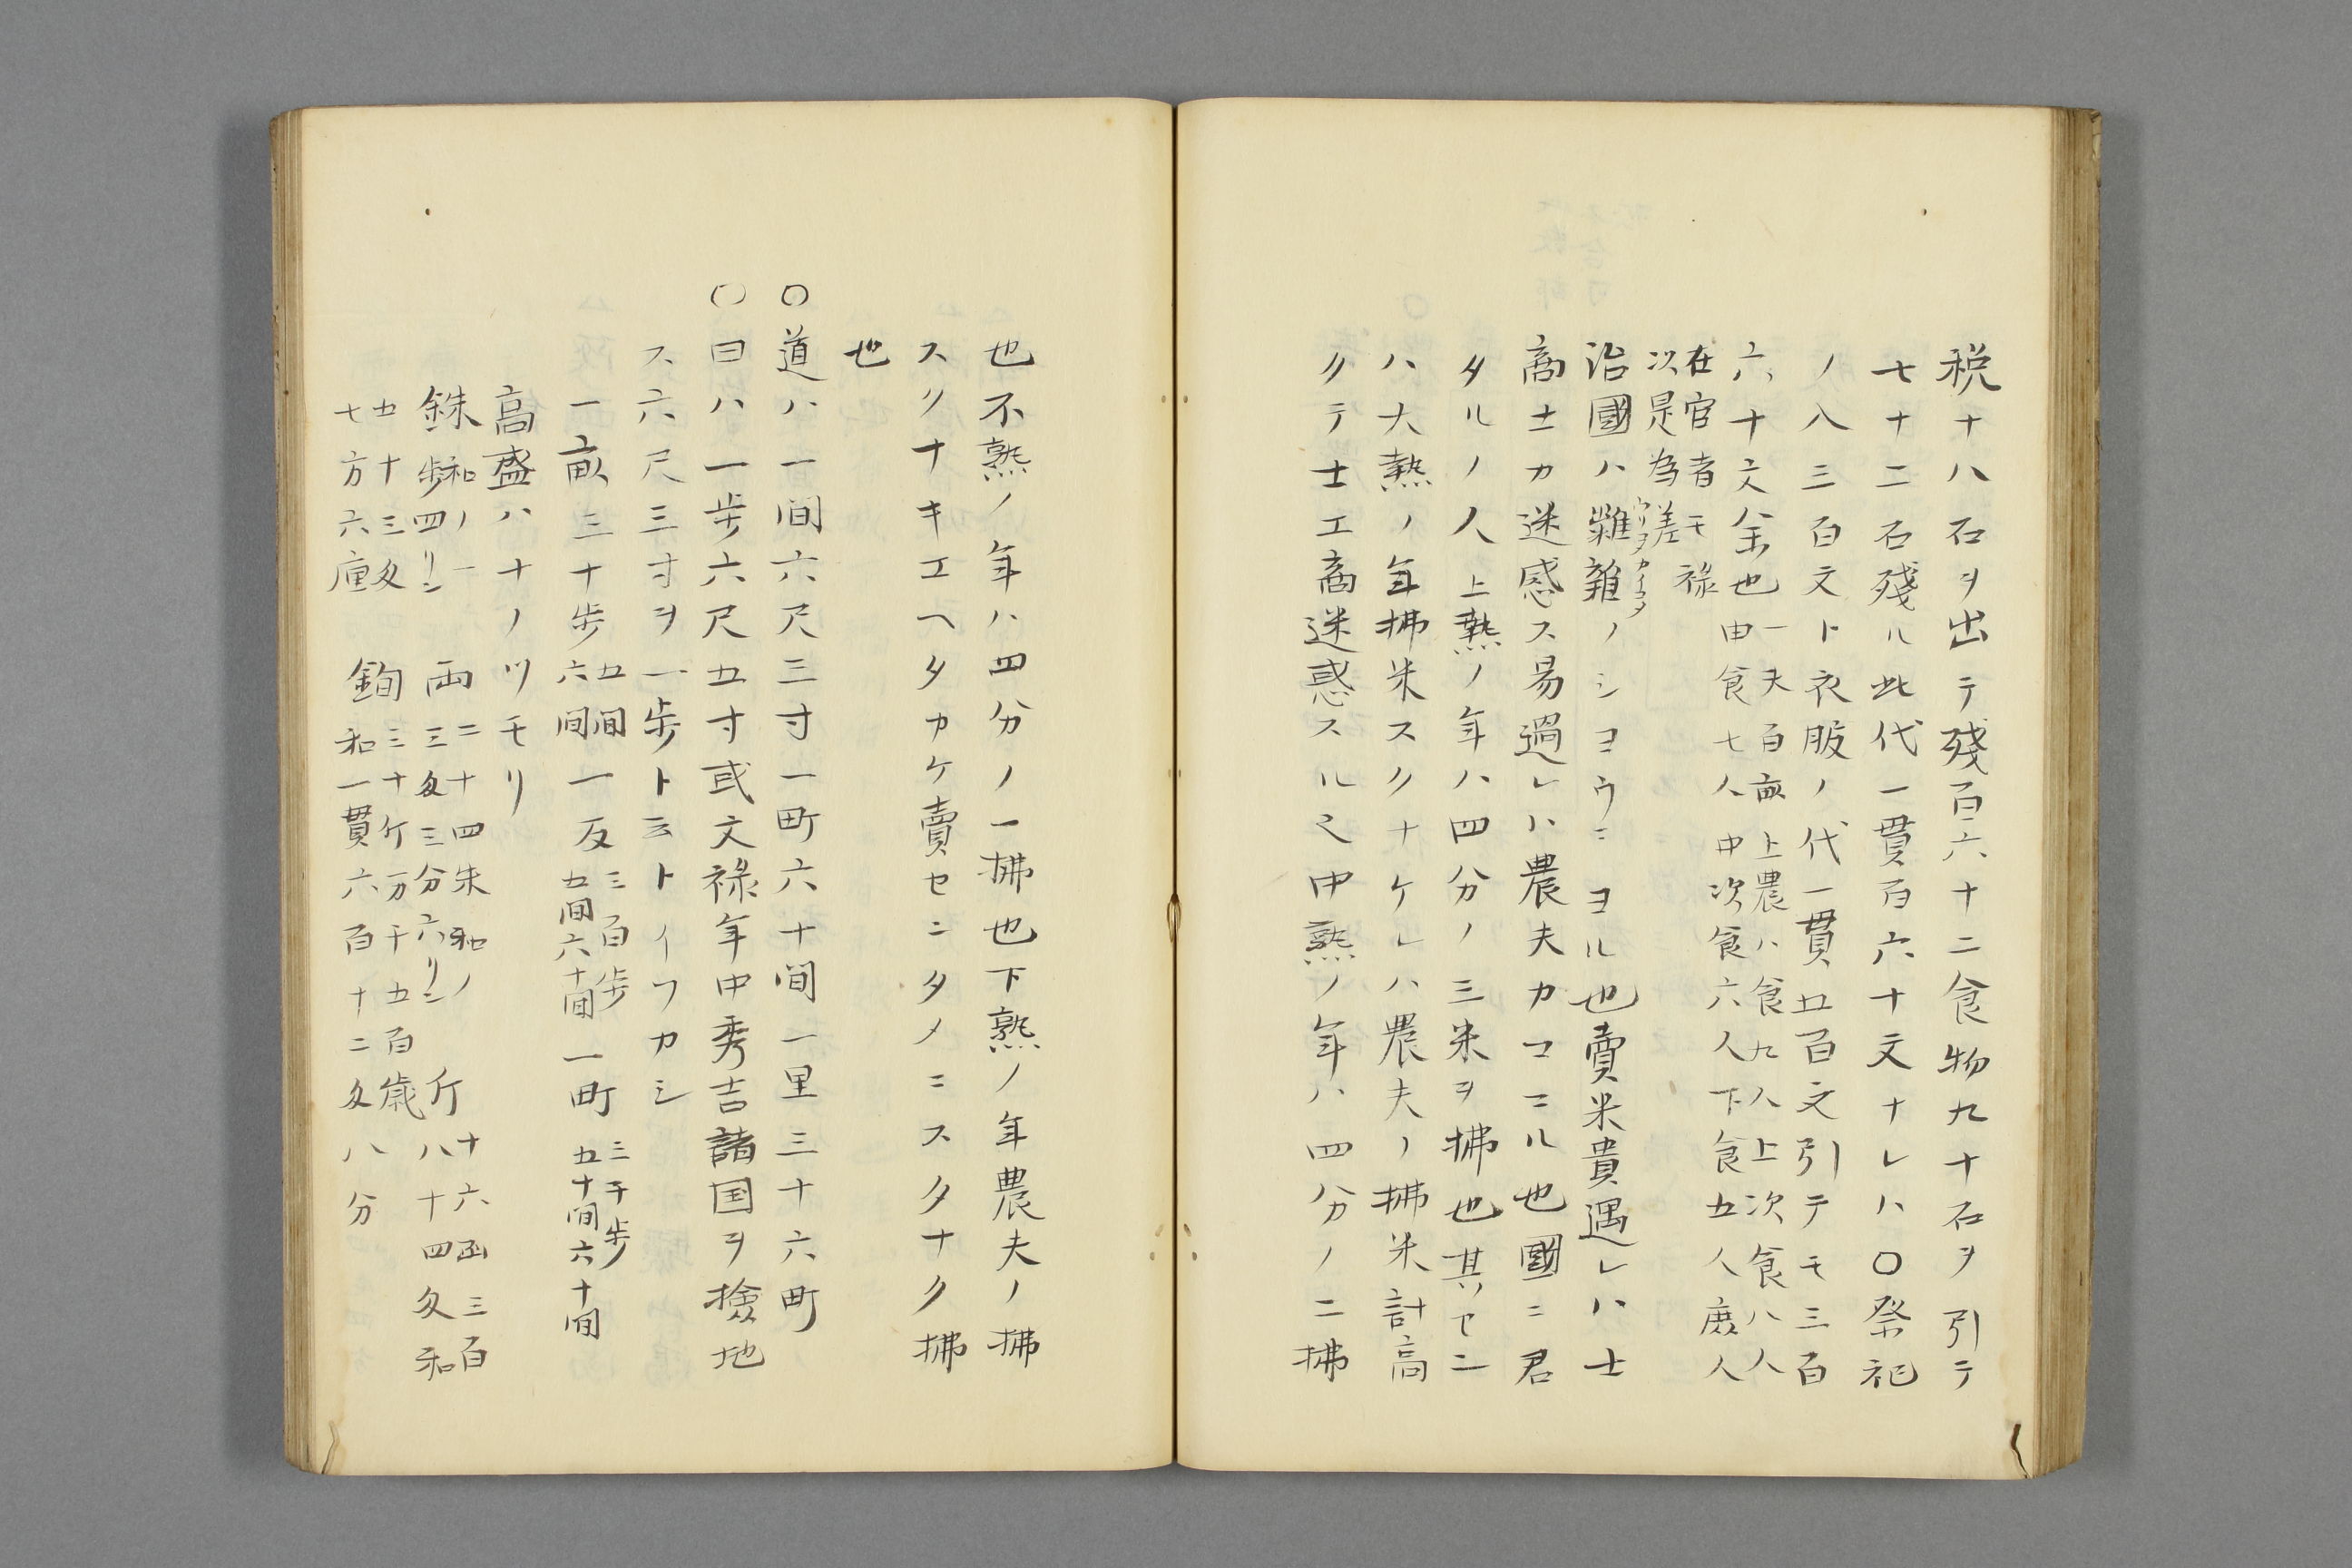 税十八石ヲ出テ殘百六十二食物九十石ヲ引テ
七十二石殘ル此代一貫百六十文ナレハ〇祭祀
ノ八三百文ト衣服ノ代一貫五百文引テモ三百
六十文余也
一夫百畝上農ハ食九人上次食八人
由食七人中次食六人下食五人庶人
在官者モ禄
以是為差
治國ハ糶雜ノシヨウニヨル也賣米貴過レハ士
ウリヲカイヲノ
商士カ迷惑ス易過レハ農夫カコニル也國ニ君
タルノ人上熟ノ年ハ四分ノ三米ヲ拂也其セニ
ハ大熟ノ年拂米スクナケレハ農夫ノ拂米計高
クテ士工商迷惑スル之中熟ノ年ハ四分ノ二拂
也不熟ノ年ハ四分ノ一拂也下熟ノ年農夫ノ拂
スクナキエヘタカケ賣セニタメニスタナク拂
也
〇道ハ一間六尺三寸一町六十間一里三十六町
〇曰ハ一歩六尺五寸或文禄年中秀吉諸国ヲ撿地
ス六尺三寸ヲ一歩ト云トイフカシ
一畝三十歩
五間
六間
一反
三百歩
五間六十間
一町
三千歩
五十間六十間
高盛ハ十ノツモリ
銖
和ノ一
歩四リン
両
二十四朱和ノ
三匁三分六リン
斤
十六両三百
八十四匁和
五十三匁
七方六厘
鈞
三十斤万千五百歳
和一貫六百十二匁八分